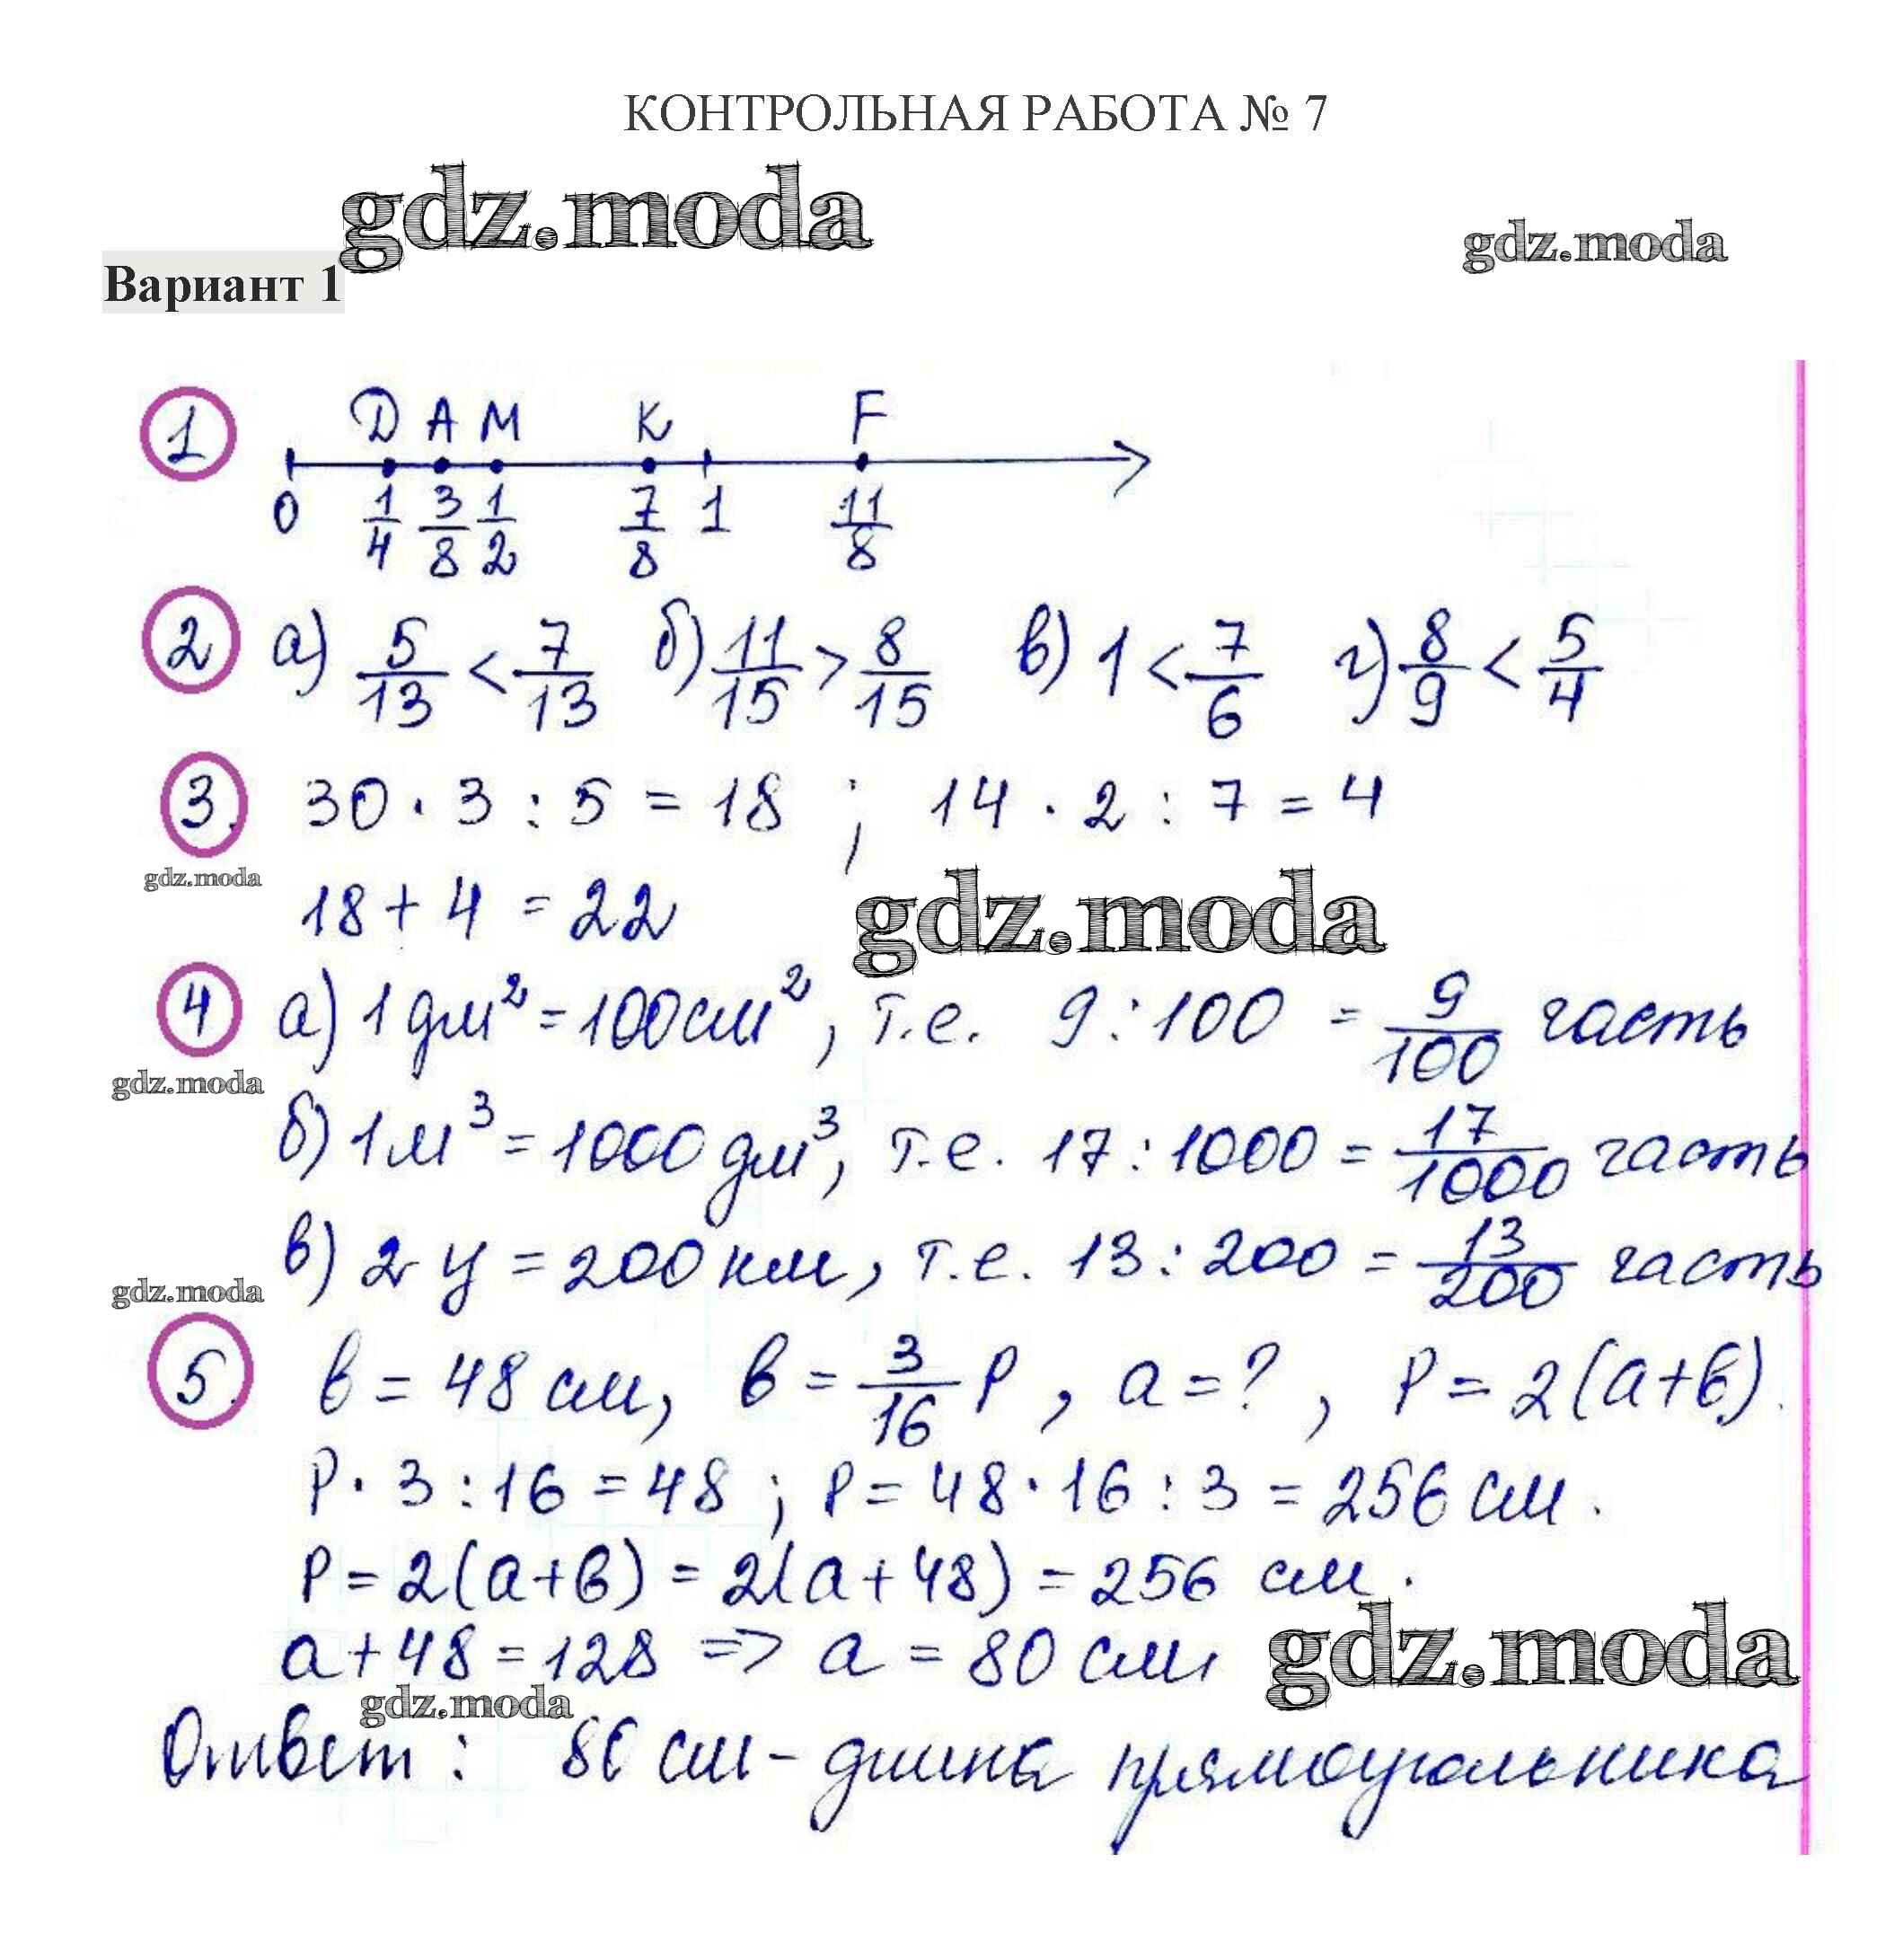 КОНТРОЛЬНАЯ РАБОТА № 7
gdz.moda
gdz.moda
Вариант 1
1 D A M K F
0 1/4 3/8 1/2 7/8 1 11/8
2 а) 5/13 < 7/13 б) 11/15 > 8/15 в) 1 < 7/6 г) 8/9 < 5/4
3. 30 · 3 : 5 = 18 ; 14 · 2 : 7 = 4
gdz.moda
18 + 4 = 22
gdz.moda
4 а) 1 дм² = 100 см², т.е. 9 : 100 = 9/100 часть
gdz.moda
б) 1 м³ = 1000 дм³, т.е. 17 : 1000 = 17/1000 часть
в) 2 ч = 200 км, т.е. 13 : 200 = 13/200 часть
gdz.moda
5. в = 48 см, в = 3/16 Р, а = ?, Р = 2(а+в).
Р · 3 : 16 = 48 ; Р = 48 · 16 : 3 = 256 см.
Р = 2(а+в) = 2(а+48) = 256 см.
а + 48 = 128 => а = 80 см
gdz.moda
gdz.moda
Ответ : 80 см - длина прямоугольника